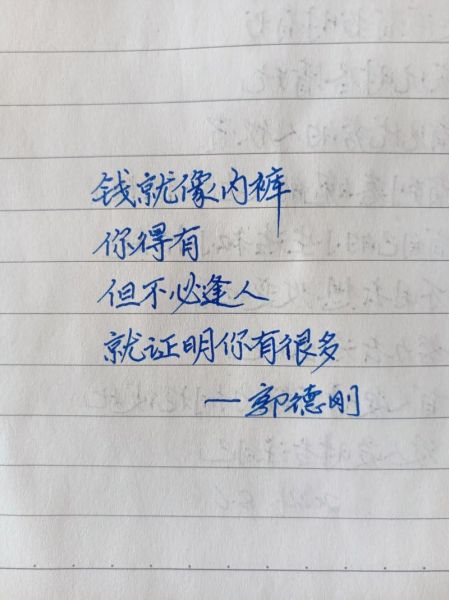 钱就像内裤
你得有
但不必逢人
就证明你有很多
—郭德刚